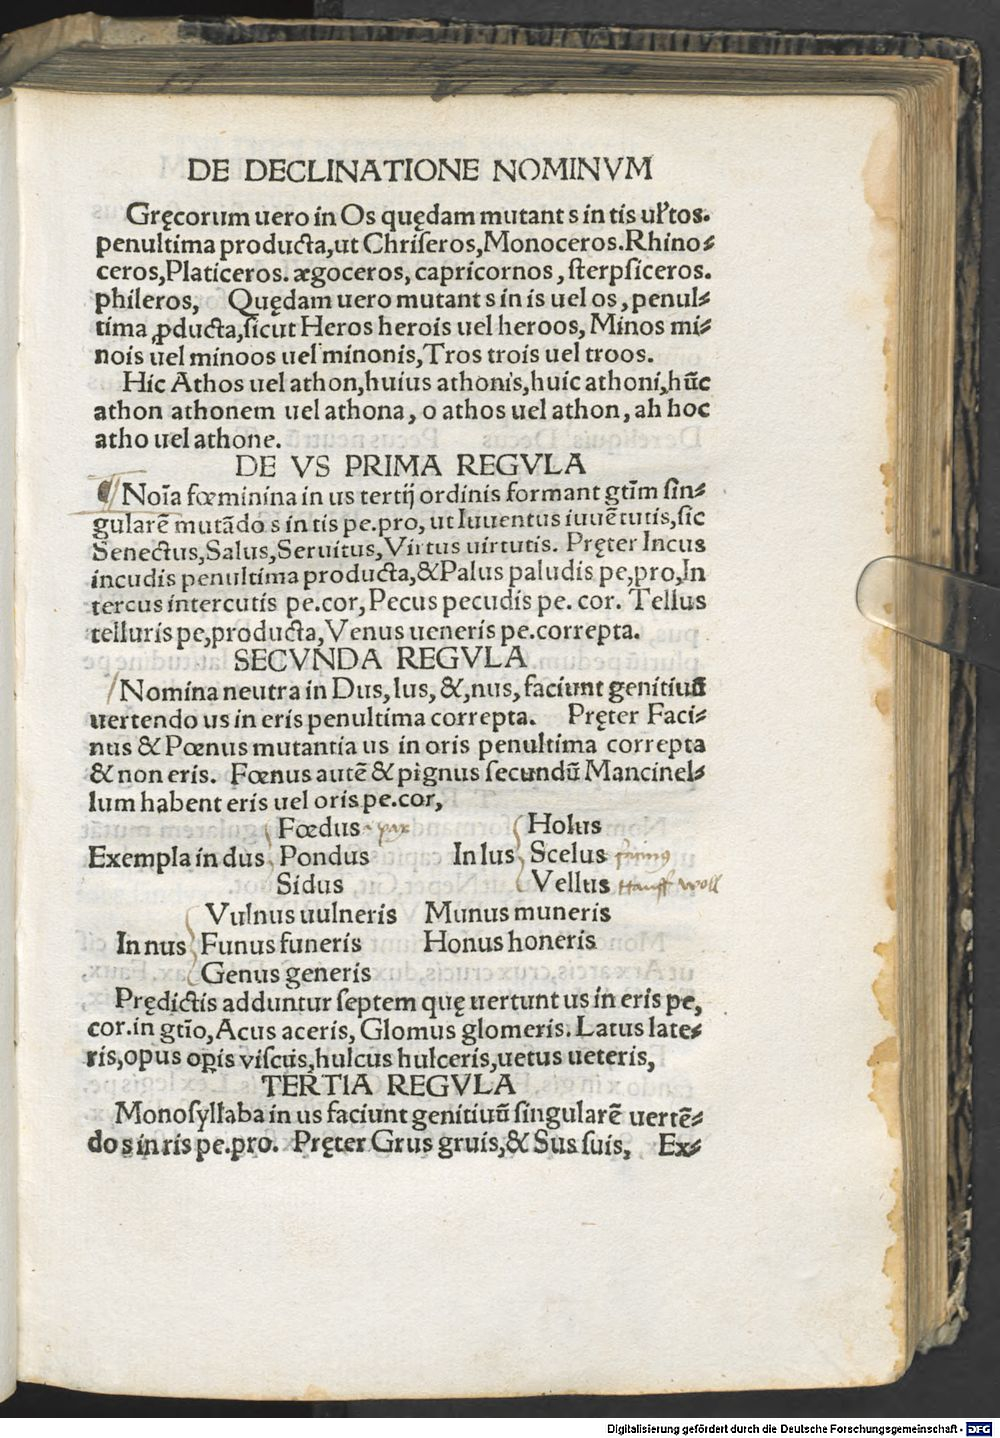 DE DECLINATIONE NOMINVM
Gręcorum uero in Os quędam mutant s in tis ul'tos.
penultima producta,ut Chriſeros,Monoceros.Rhino⸗
ceros,Platiceros.ægoceros,capricornos,ſterpſiceros.
phileros, Quędam uero mutant s in is uel os,penul⸗
tima ꝓducta,ſicut Heros herois uel heroos,Minos mi⸗
nois uel minoos uel minonis,Tros trois uel troos.
Hic Athos uel athon,huius athonis,huic athoni,hūc
athon athonem uel athona, o athos uel athon, ah hoc
atho uel athone.
DE VS PRIMA REGVLA
¶ Noīa fœminina in us tertij ordinis formant gt̄m ſin⸗
gularē mutādo s in tis pe.pro, ut Iuuentus iuuētutis,ſic
Senectus,Salus,Seruitus,Virtus uirtutis. Pręter Incus
incudis penultima producta,&Palus paludis pe,pro,In
tercus intercutis pe.cor,Pecus pecudis pe. cor. Tellus
telluris pe,producta,Venus ueneris pe.correpta.
SECVNDA REGVLA
Nomina neutra in Dus,lus,&,nus,faciunt genitiuū
uertendo us in eris penultima correpta. Pręter Faci⸗
nus & Pœnus mutantia us in oris penultima correpta
& non eris. Fœnus autē & pignus ſecundū Mancinel⸗
lum habent eris uel oris pe.cor,
Fœdus pax Holus
Exempla in dus Pondus In lus Scelus
Sidus Vellus woll
Vulnus uulneris Munus muneris
In nus Funus funeris Honus honeris
Genus generis
Prędictis adduntur ſeptem quę uertunt us in eris pe,
cor.in gt̄io,Acus aceris, Glomus glomeris.Latus late⸗
ris,opus oꝑis viſcus,hulcus hulceris,uetus ueteris,
TERTIA REGVLA
Monoſyllaba in us faciunt genitiuū ſingularē uertē⸗
do s in ris pe.pro. Pręter Grus gruis,& Sus ſuis, Ex⸗
Digitalisierung gefördert durch die Deutsche Forschungsgemeinschaft - DFG